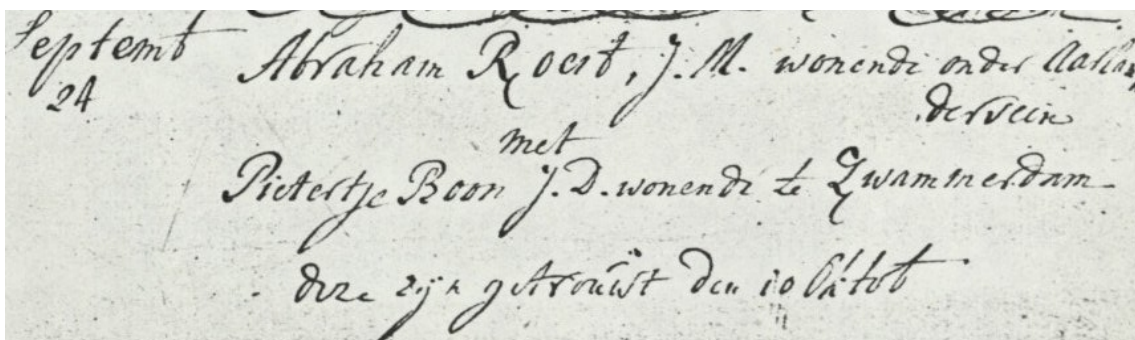 Septemb Abraham Roest, J. M. wonende onder Aarlan
24 derveen
met
Pietertje Boon J. D. wonende te Zwammerdam
deze zijn getrouwt den 10 Oktob